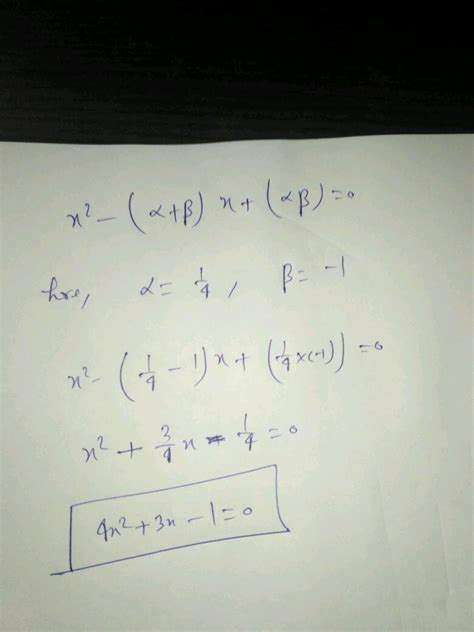 x² - (α+β) x + (αβ) = 0
here, α = 1/4, β = -1
x² - (1/4 - 1)x + (1/4 x(-1)) = 0
x² + 3/4 x - 1/4 = 0
4x² + 3x - 1 = 0